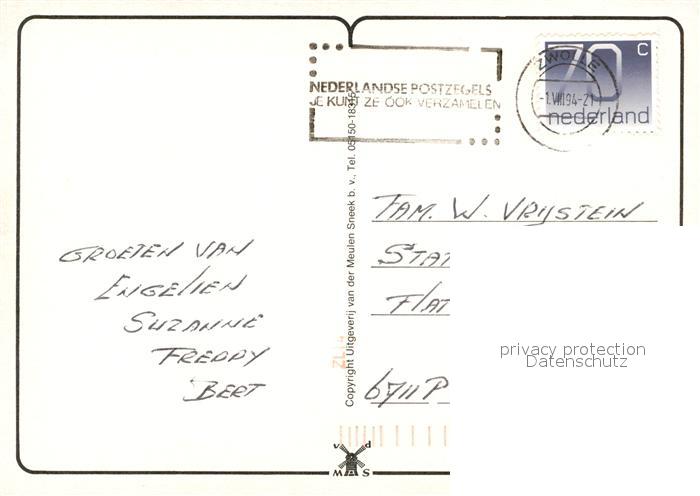 NEDERLANDSE POSTZEGELS
JE KUNT ZE OOK VERZAMELEN
ZWOLLE
-1.VIII94-21
70 C
nederland
GROETEN VAN
ENGELIEN
SUZANNE
FREDDY
BERT
Copyright Uitgeverij van der Meulen Sneek b. v., Tel. 05150-18315
FAM. W. VRIJSTEIN
STAT
FLAT
6711 P
privacy protection
Datenschutz
v d
MAS